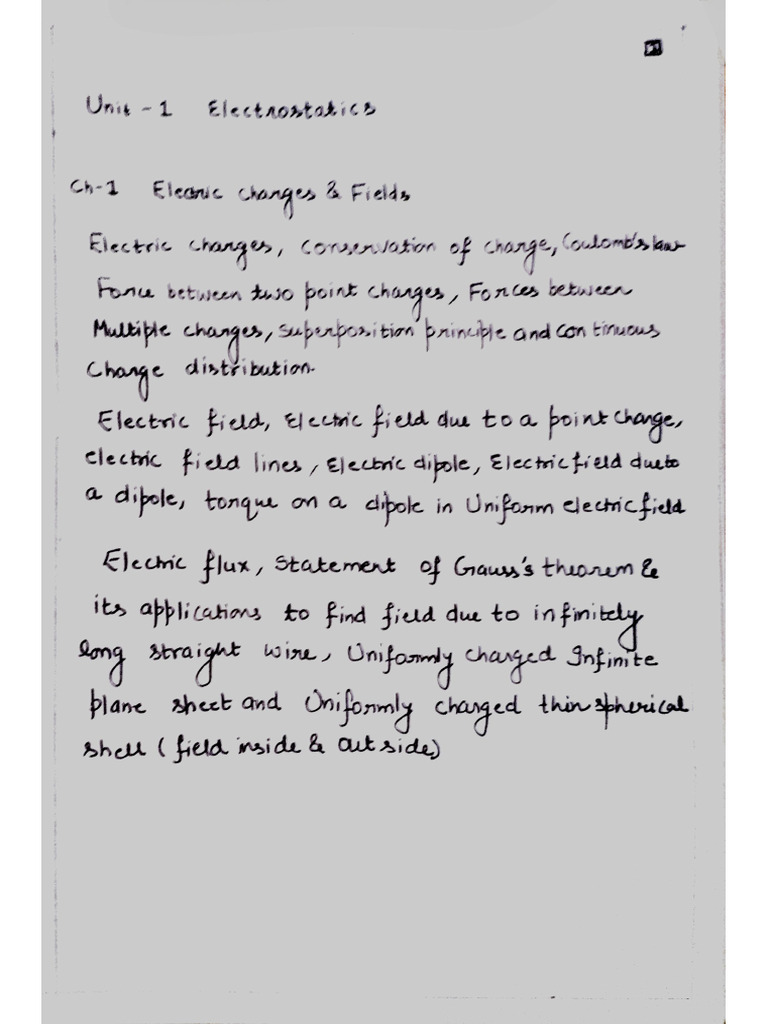 Unit - 1 Electrostatics
Ch-1 Electric Charges & Fields
Electric charges, Conservation of charge, Coulomb's law
Force between two point charges, Forces between
Multiple charges, superposition principle and continuous
Charge distribution.
Electric field, Electric field due to a point charge,
electric field lines, Electric dipole, Electric field due to
a dipole, torque on a dipole in Uniform electric field
Electric flux, Statement of Gauss's theorem &
its applications to find field due to infinitely
long straight wire, Uniformly charged Infinite
plane sheet and Uniformly charged thin spherical
shell (field inside & outside)